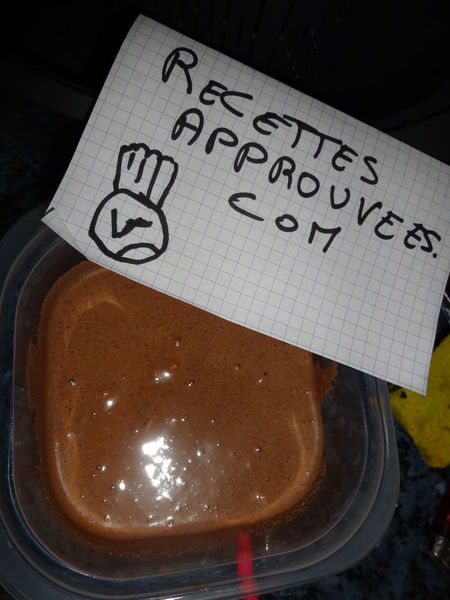 RECETTES
APPROUVEES.
COM